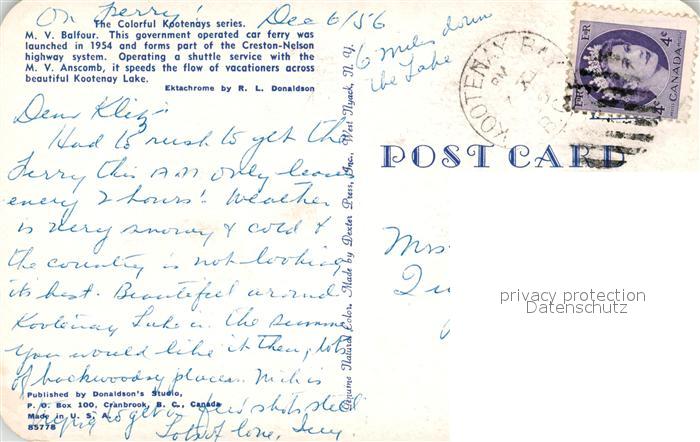 On Ferry! Dec 6/56
The Colorful Kootenays series.
M. V. Balfour. This government operated car ferry was
launched in 1954 and forms part of the Creston-Nelson
highway system. Operating a shuttle service with the
M. V. Anscomb, it speeds the flow of vacationers across
beautiful Kootenay Lake.
Ektachrome by R. L. Donaldson
6 miles down
the Lake
KOOTENAY BAY
PM
4¢ 4¢
CANADA
POST CARD
Dear
Had to rush to get the
Ferry this AM only leaves
every 2 hours! Weather
is very snowy & cold &
the country is not looking
its best. Beautiful around
Kootenay Lake in the summer
you would like it then, lots
of backwoodsy places. Nick is
trying to get a few shots still
Lots of love,
Published by Donaldson's Studio,
P. O. Box 100, Cranbrook, B. C., Canada
Made in U. S. A.
85778
Natural Color. Made by Dexter Press, Inc., West Nyack, N. Y.
Mrs.
privacy protection
Datenschutz